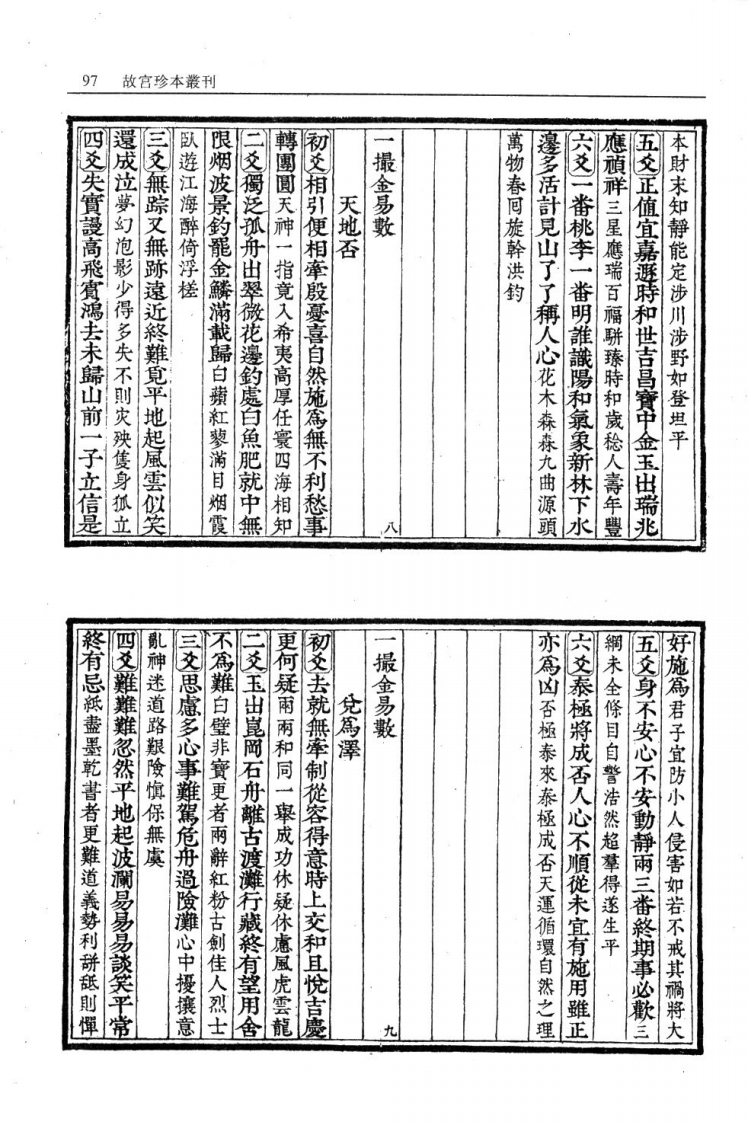 97 故宮珍本叢刊
本財末知靜能定涉川涉野如登坦平
五爻正值宜嘉遯時和世吉昌寶中金玉出瑞兆
應禎祥三星應瑞百福駢臻時和歲稔人壽年豐
六爻一番桃李一番明誰識陽和氣象新林下水
邊多活計見山了了稱人心花木森森九曲源頭
萬物春回旋斡洪鈞
一撮金易數
八
天地否
初爻相引便相牽殷憂喜自然施為無不利愁事
轉團圓天神一指竟入希夷高厚任寰四海相知
二爻獨泛孤舟出翠微花邊釣處白魚肥就中無
限烟波景釣罷金鱗滿載歸白蘋紅蓼滿目烟霞
臥遊江海醉倚浮槎
三爻無踪又無跡遠近終難覓平地起風雲似笑
還成泣夢幻泡影少得多失不則灾殃隻身孤立
四爻失實謾高飛賓鴻去未歸山前一子立信是
好施為君子宜防小人侵害如若不戒其禍將大
五爻身不安心不安動靜兩三番終期事必歡三
綱未全條目自警浩然超羣得遂生平
六爻泰極將成否人心不順從未宜有施用雖正
亦為凶否極泰來泰極成否天運循環自然之理
一撮金易數
九
兌為澤
初爻去就無牽制從容得意時上交和且悅吉慶
更何疑兩兩和同一舉成功休疑休慮風虎雲龍
二爻玉出崑岡石舟離古渡灘行藏終有望用舍
不為難白璧非寶更者兩辭紅粉古劍佳人烈士
三爻思慮多心事難駕危舟過險灘心中擾攘意
亂神迷道路艱險慎保無虞
四爻難難難忽然平地起波瀾易易易談笑平常
終有忌紙盡墨乾書者更難道義勢利舔舐則憚